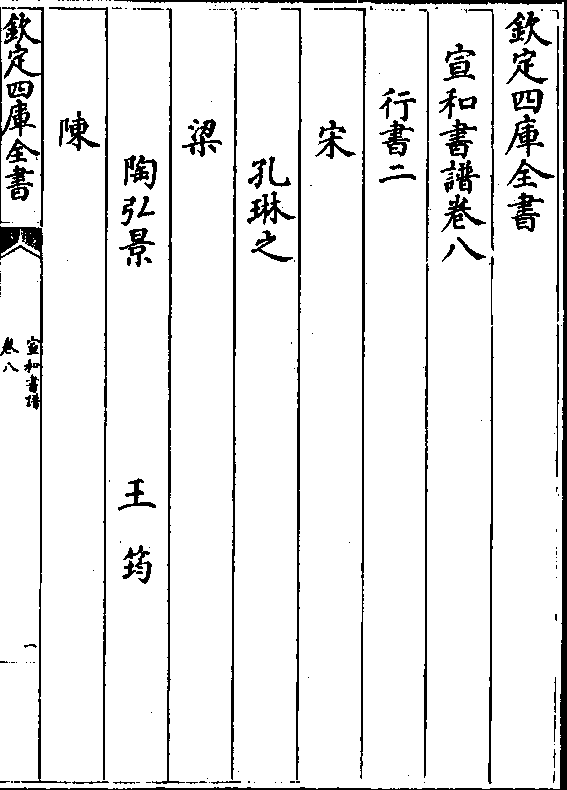 欽定四庫全書
宣和書譜卷八
行書二
宋
孔琳之
梁
陶弘景 王筠
陳
欽定四庫全書
宣和書譜
卷八
一